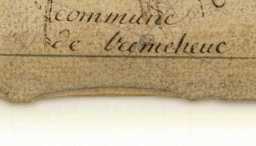 commune
de tremeheuc